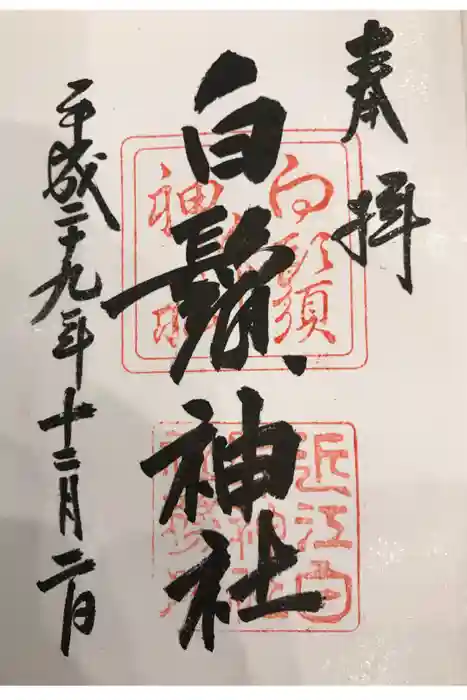 奉拝
白鬚神社
平成二十九年十二月二日
近江白